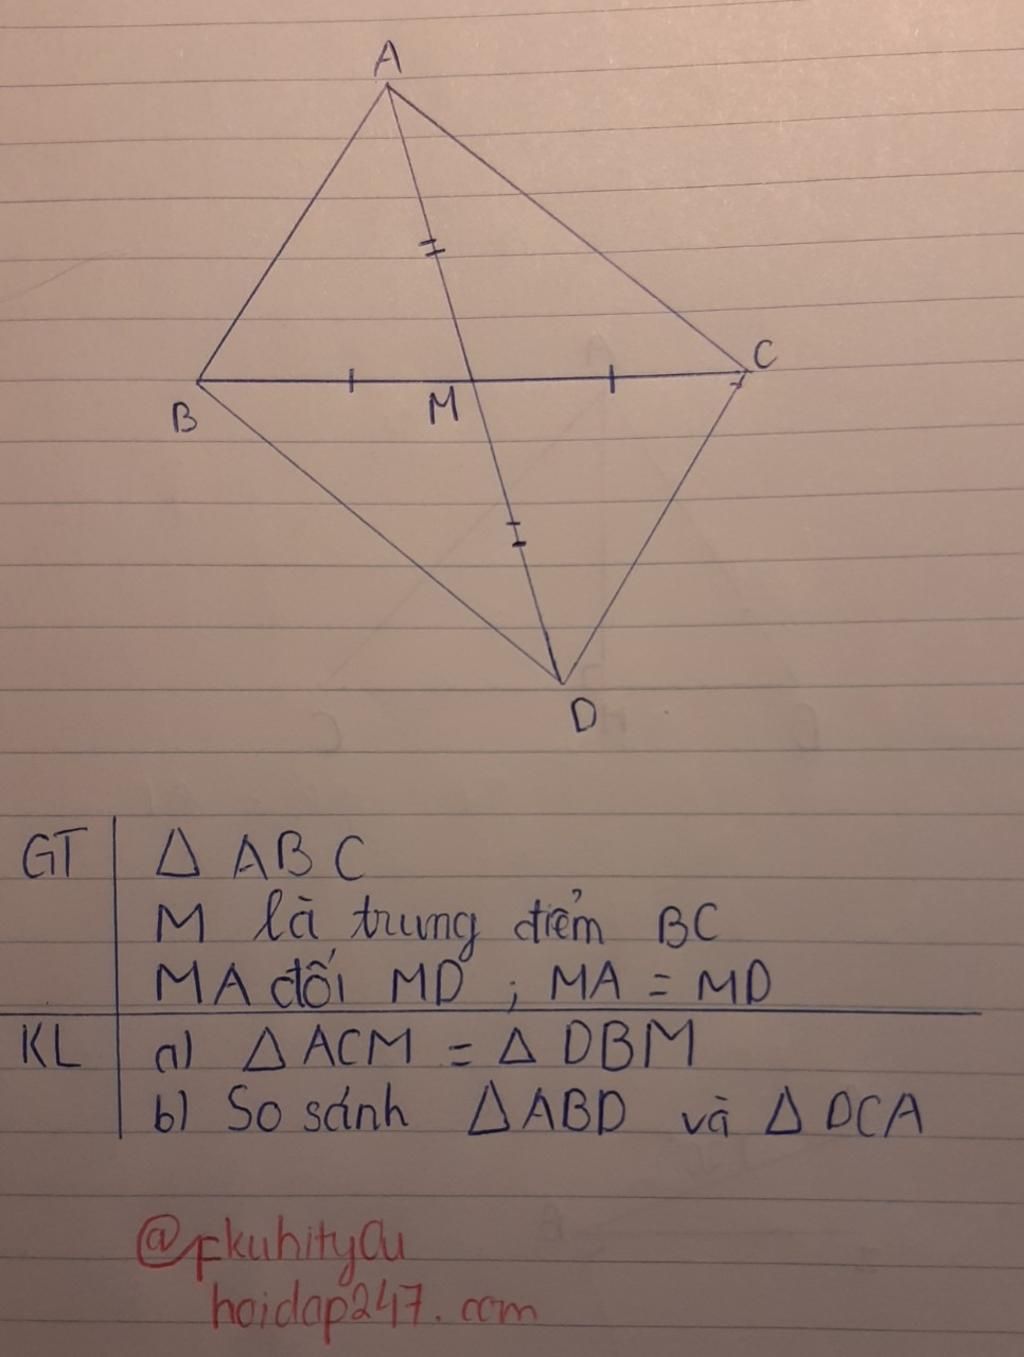 A
C
B
M
D
GT Δ ABC
M là trung điểm BC
MA đối MD ; MA = MD
KL a) Δ ACM = Δ DBM
b) So sánh Δ ABD và Δ DCA
@fkuhityCu
hoidap247.com